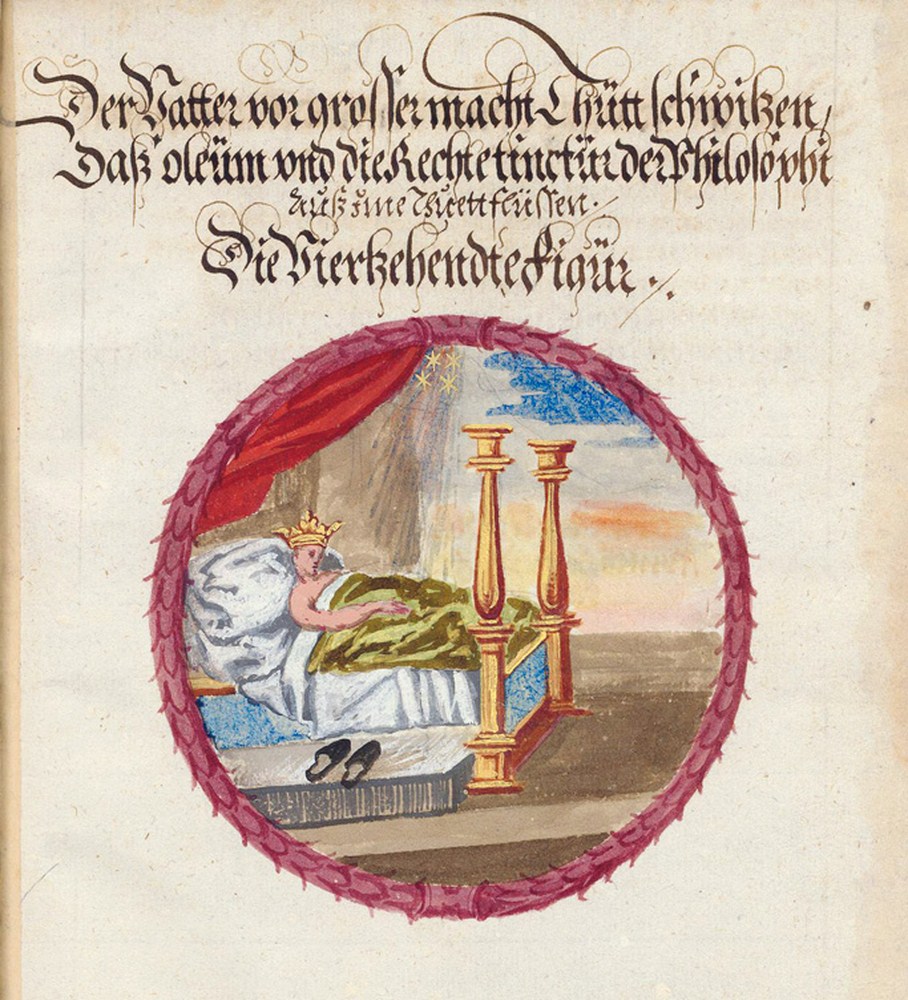 Der Vatter vor grosser macht Thütt schwitzen,
Daß oleüm vnd die Rechte tinctür der Philosophi
Auß ime Thuett flüssen.
Die Viertzehendte Figür.